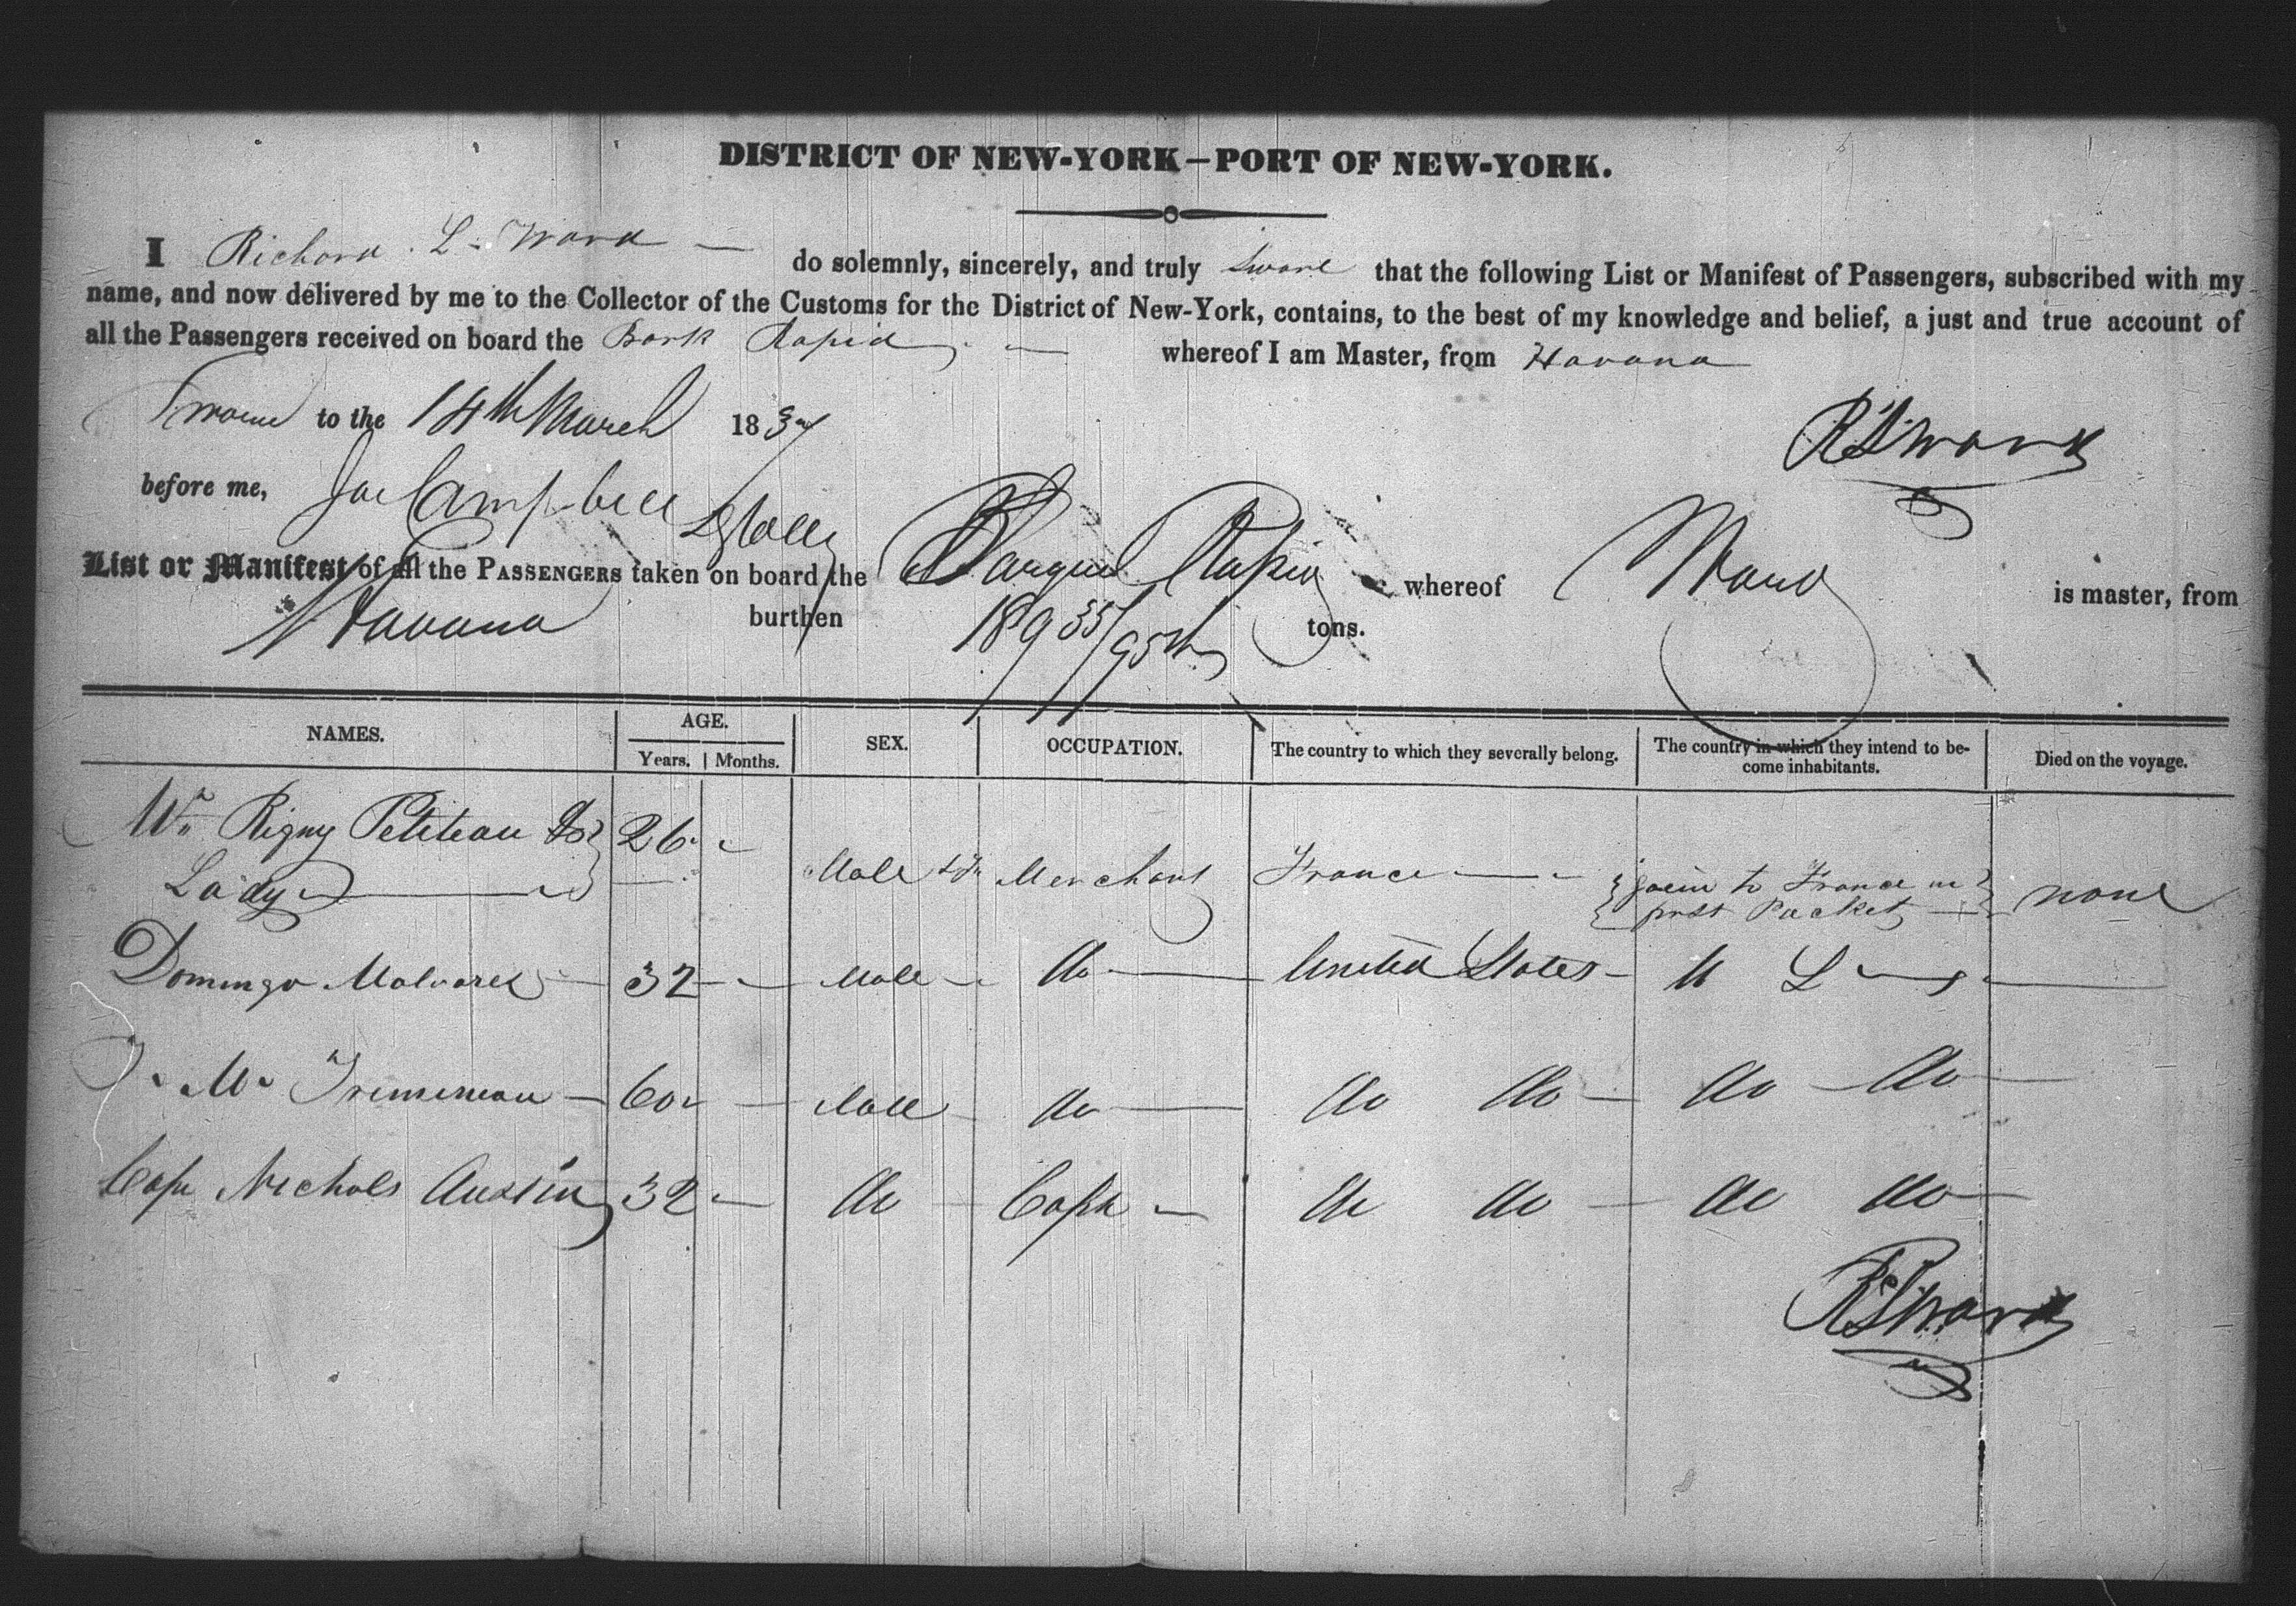 DISTRICT OF NEW-YORK—PORT OF NEW-YORK.
I Richard L. Ward — do solemnly, sincerely, and truly Sware that the following List or Manifest of Passengers, subscribed with my
name, and now delivered by me to the Collector of the Customs for the District of New-York, contains, to the best of my knowledge and belief, a just and true account of
all the Passengers received on board the Bark Rapid — whereof I am Master, from Havana
Sworn to the 14th March 1837
R L Ward
before me, Campbell
List or Manifest of all the PASSENGERS taken on board the Barque Rapid whereof Ward is master, from
Havana burthen 189 35/95ths tons.
NAMES. AGE. SEX. OCCUPATION. The country to which they severally belong. The country in which they intend to be-
come inhabitants. Died on the voyage.
Years. Months.
Wm Rigny Petiteau &
Lady 26 Male Merchant France going to France in
Packet none
Domingo Malvarez 32 Male do United States U S
Mr 60 Male do do do do do
Capt Nichols Austin 32 do Capt do do do do
R L Ward